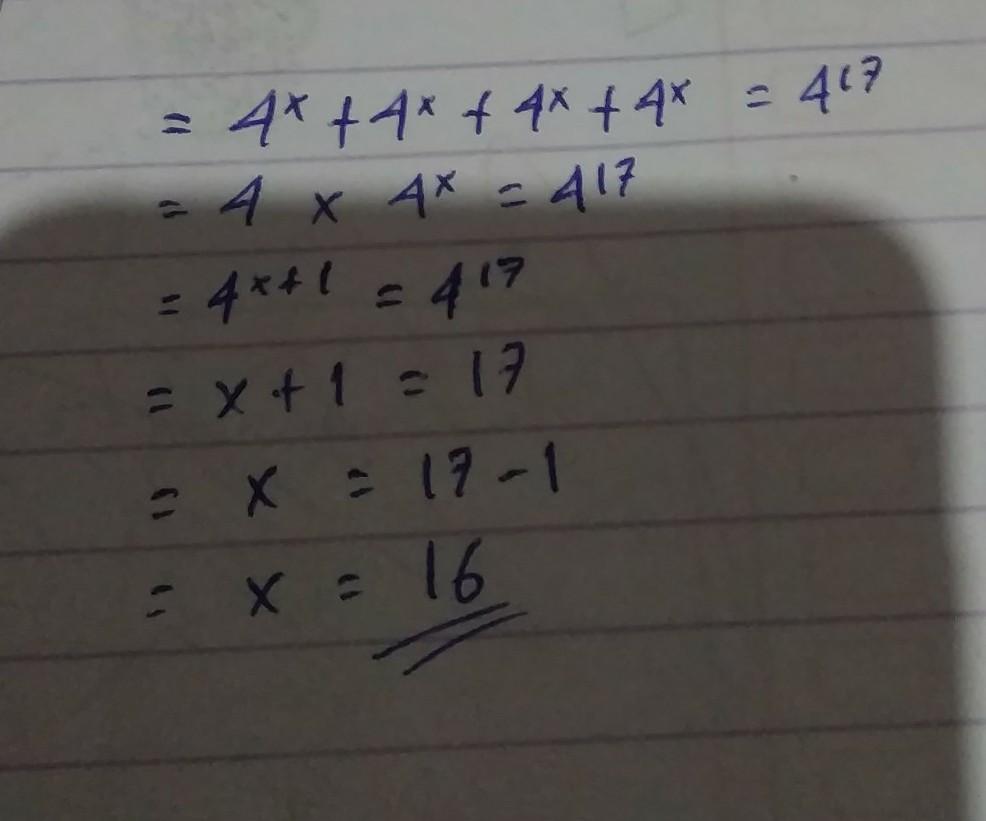 = 4ˣ + 4ˣ + 4ˣ + 4ˣ = 4¹⁷
= 4 × 4ˣ = 4¹⁷
= 4ˣ⁺¹ = 4¹⁷
= x + 1 = 17
= x = 17 - 1
= x = 16